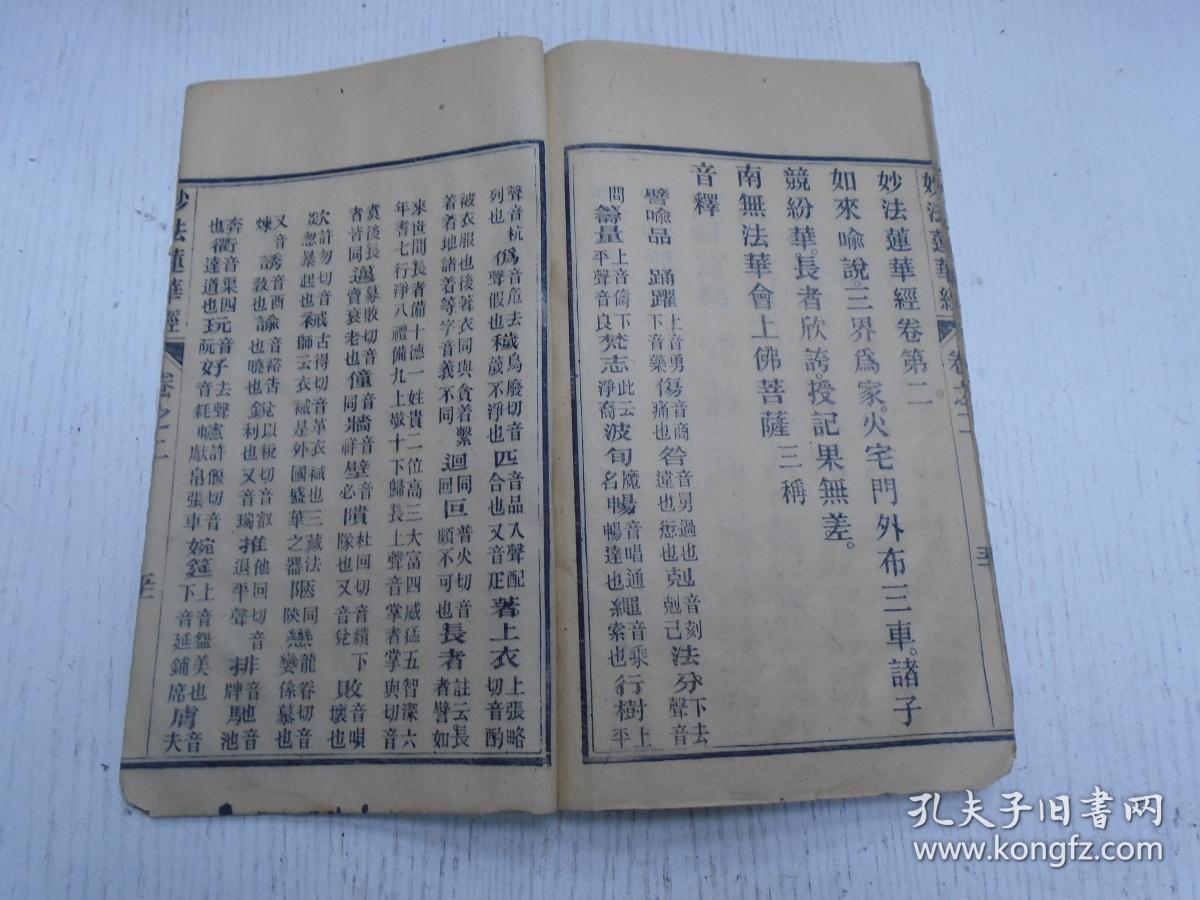 妙法蓮華經
卷之二
妙法蓮華經卷第二
如來喻說。三界爲家。火宅門外布三車。諸子
競紛華。長者欣誇。授記果無差。
南無法華會上佛菩薩 三稱
音釋
譬喻品 踊躍 上音勇下音藥 傷 音商痛也 咎 音舅過也違也愆也 剋 音刻剋己 法分 下去聲音
問 籌量 上音儔下平聲音良 梵志 此云淨裔 波旬 魔名 暢 音唱通暢達也 繩 音乘索也 行樹 上平
聲音杭列也 僞 音危去聲假也 穢 烏廢切音薉不淨也 匹 音品入聲配合也又音疋 著上衣 上張略切音酌
被衣服也後著衣同與貪着繫着者地諸着等字音義不同 迴 同回 叵 普火切音頗不可也 長者 註云長者譬如
來世間長者備十德一姓貴二位高三大富四威猛五智深六年耆七行淨八禮備九上敬十下歸長上聲音掌者掌與切音
賓後長者皆同 邁 暮敗切音賣衰老也 僮 音同 牆 音祥 壁 音必 隤 杜回切音頹下隊也又音兌 敗 音唄壞也
欻 許勿切音忽暴起也 衣祴 古得切音革衣祴也三藏法師云衣祴是外國盛華之器 陿 同陝 戀 龍眷切音孌係慕也
又音煉 誘 音酉教也 諭 音裕告也曉也 銳 兌以稅切音叡利也又音瑞 推 他回切音退平聲 排 音牌 馳 音池
奔也 衢 音渠四達道也 玩 音阮 好 去聲音耗 幰 虛偃切音獻帛張車 婉筵 上音盌美也下音延鋪席 膚 音夫
妙法蓮華經
卷之二